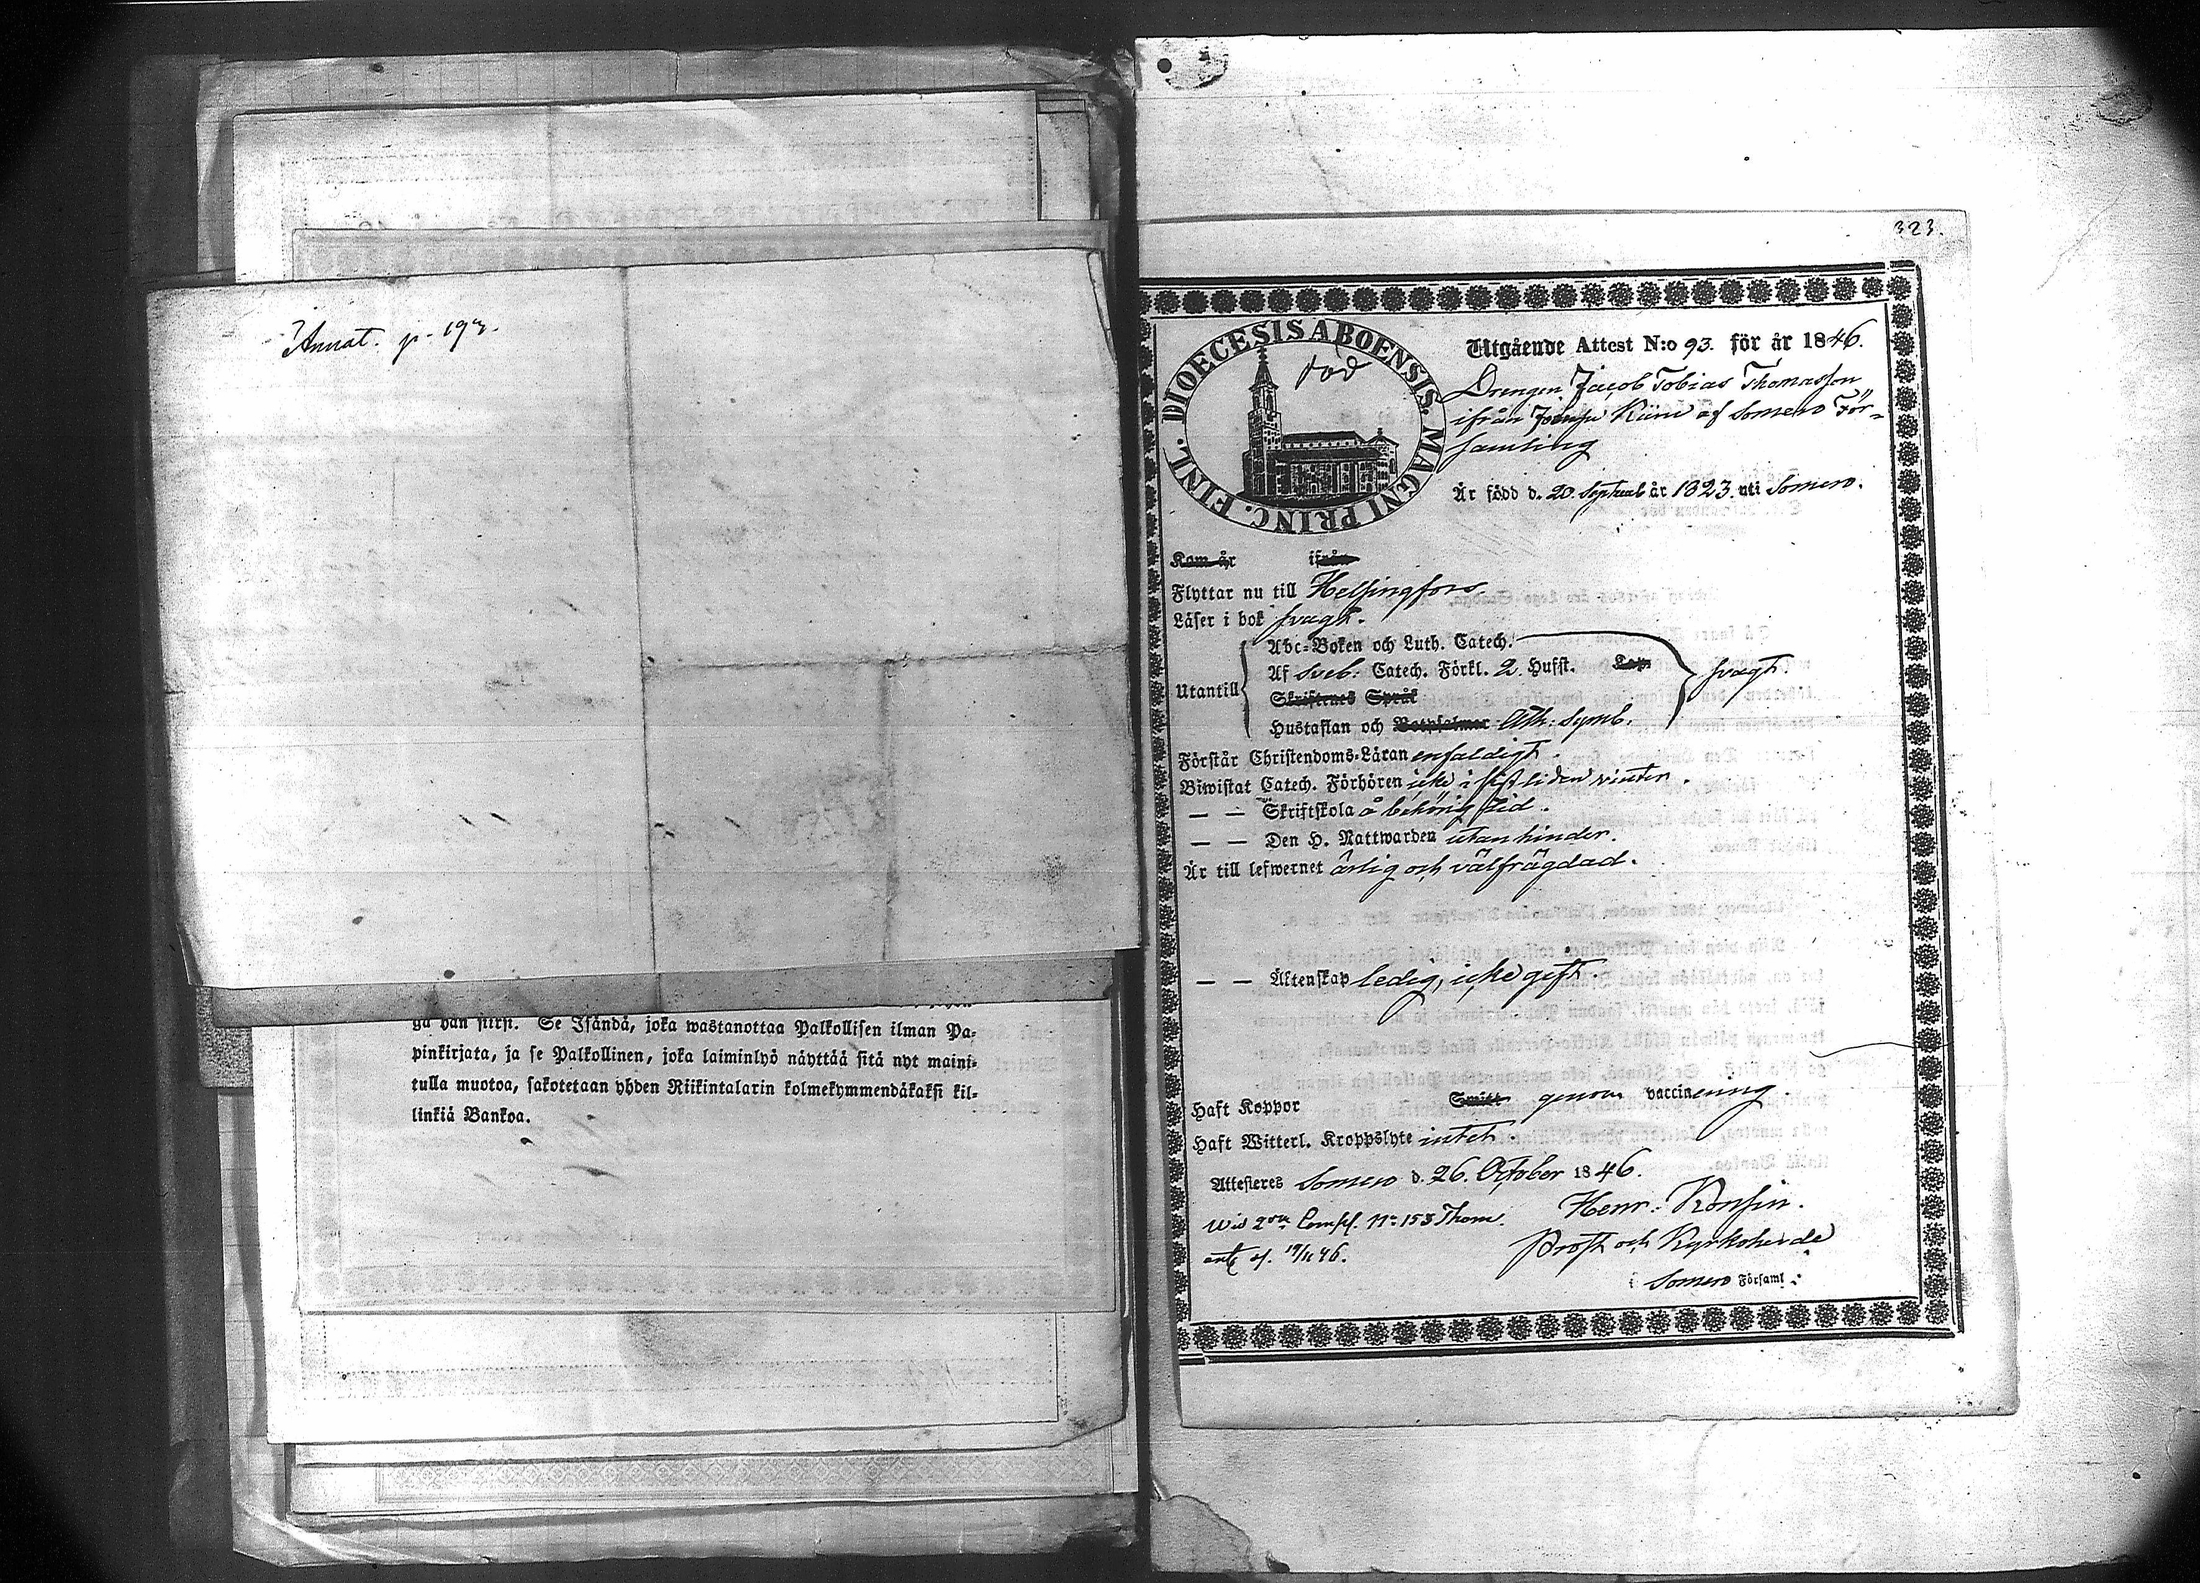 Annat. p. 193.
ga hän siirsi. Se Isändä, joka wastanottaa Palkollisen ilman Pa-
pinkirjata, ja se Palkollinen, joka laiminlyö näyttää sitä nyt maini-
tulla muotoa, sakotetaan yhden Riikintalarin kolmekymmendäkaksi kil-
linkiä Bankoa.
323.
DIOECESIS ABOENSIS. MAGNI PRINC. FINL.
död
Utgående Attest N:o 93. för år 1846.
Drengen Jacob Tobias Thomasson
ifrån Kiine af Somero För-
samling
Är född d. 20. Septemb år 1823. uti Somero.
Kom år ifrån
Flyttar nu till Helsingfors.
Läser i bok svagt.
Utantill
Abc-Boken och Luth. Catech.
Af Sveb: Catech. Förkl. 2. Hufst.
svagt.
Skriftenes Språk
Hustaflan och Botpsalmer Ath: Symb.
Förstår Christendoms-Läran enfaldigt.
Biwistat Catech. Förhören icke i sistliden vinter.
— — Skriftskola å behörig tid.
— — Den H. Nattwarden utan hinder.
Är till lefwernet ärlig och välfrägdad.
— — Äktenskap ledig, icke gift.
Haft Koppor Smitt genom vaccinering.
Haft Witterl. Kroppslyte intet.
Attesteres Somero d. 26. October 1846.
Wid 2dra Compl. N:o 153 Thom.
Henr: Konsin.
ant. af. 19/11 46.
Prost och Kyrkoherde
i Somero Församl.